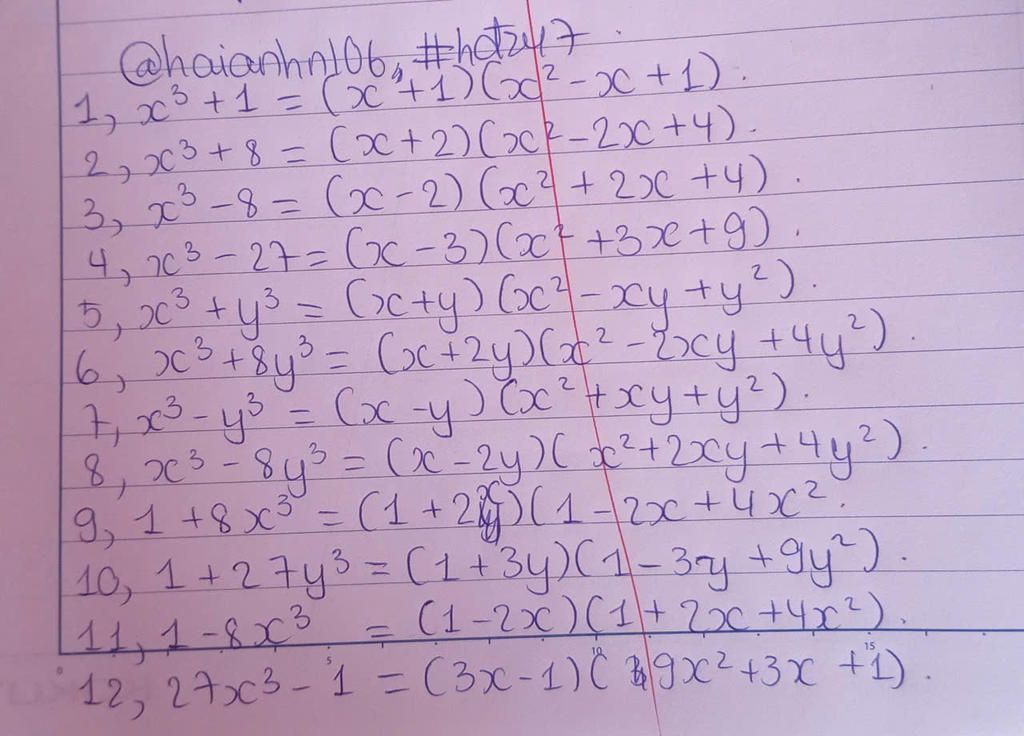 @haianhn106, #hdtzy17
1, x³ + 1 = (x + 1)(x² - x + 1).
2, x³ + 8 = (x + 2)(x² - 2x + 4).
3, x³ - 8 = (x - 2)(x² + 2x + 4).
4, x³ - 27 = (x - 3)(x² + 3x + 9).
5, x³ + y³ = (x + y)(x² - xy + y²).
6, x³ + 8y³ = (x + 2y)(x² - 2xy + 4y²).
7, x³ - y³ = (x - y)(x² + xy + y²).
8, x³ - 8y³ = (x - 2y)(x² + 2xy + 4y²).
9, 1 + 8x³ = (1 + 2x)(1 - 2x + 4x².
10, 1 + 27y³ = (1 + 3y)(1 - 3y + 9y²).
11, 1 - 8x³ = (1 - 2x)(1 + 2x + 4x²).
5 10 15
12, 27x³ - 1 = (3x - 1)(9x² + 3x + 1).